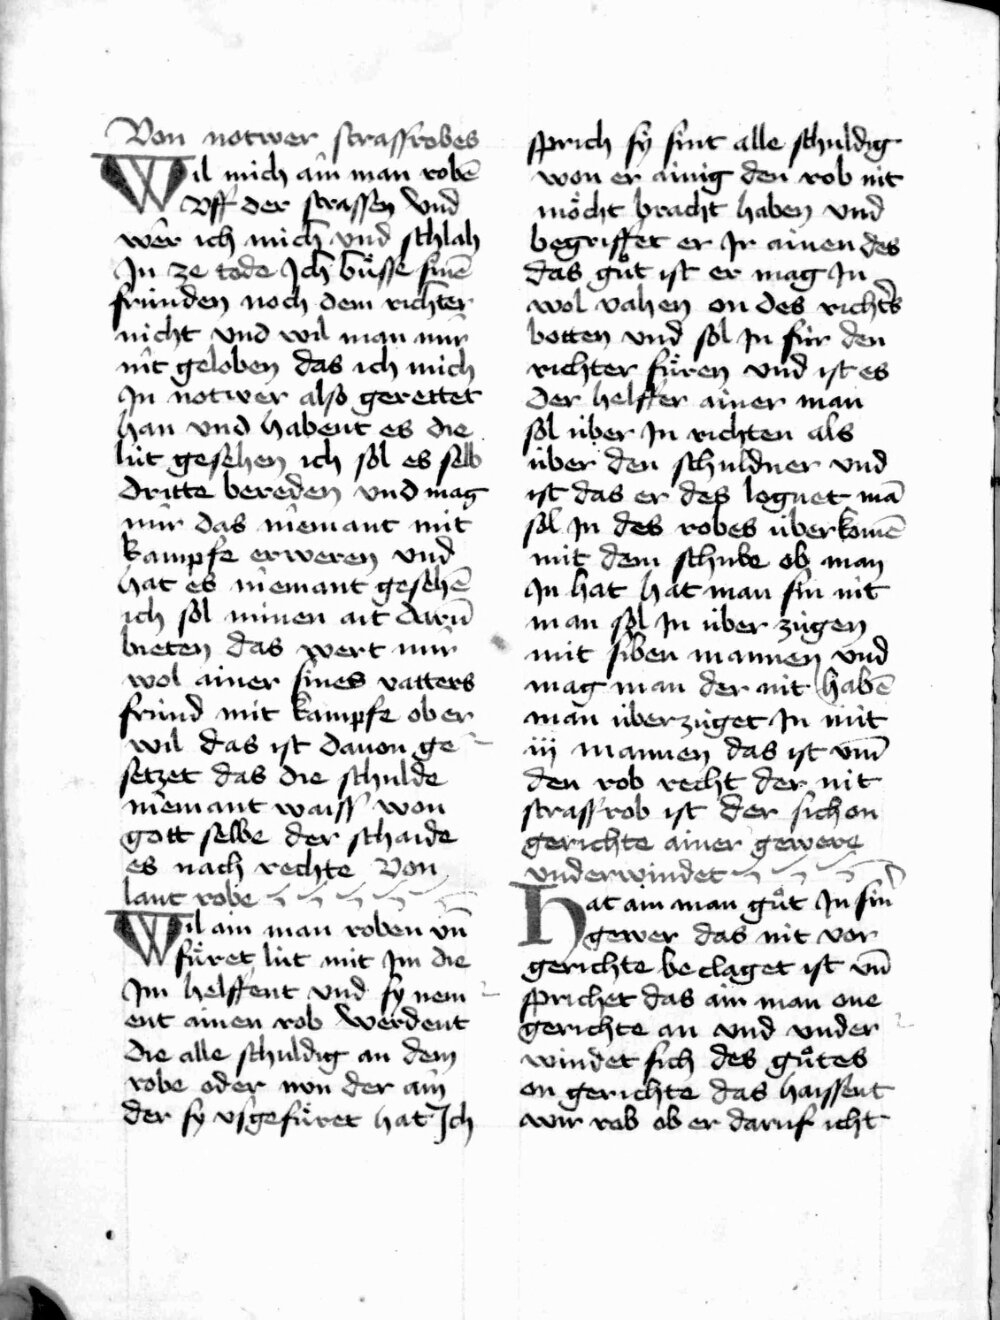 Von notwer strassrobes
Wil mich ain man robē
Vff der strassen Vnd
wer ich mich vnd schlah
In ze tode Ich bu̇sse sinē
frúnden noch dem richter
nicht vnd wil man mir
nit geloben das ich mich
In notwer also gerettet
han vnd habent es die
lút gesehen ich sol es selb
dritte bereden vnd mag
mir das niemant mit
kampfe erweren vnd
hat es niemant gesehē
ich sol minen ait darū
bieten das wert mir
wol ainer sines vatters
frúnd mit kampfe ob er
wil das ist dauon ge
setzet das die schulde
niemant waiss won
gott selbe der schaide
es nach rechte Von
lant robe
Wil ain man roben vn̄
fu̇ret lút mit Im die
Im helffent vnd sy nem
ent ainen rob Werdent
die alle schuldig an dem
robe oder nvn der ain
der sy vsgefu̇ret hat Ich
sprich sy sint alle schuldig
won er ainig den rob nit
möcht bracht haben vnd
begriffet er Ir ainen des
das gůt ist er mag In
wol vahen on des richters
botten vnd sol In für den
richter fu̇ren vnd ist es
der helffer ainer man
sol über In richten als
über den schuldner vnd
ist das er des lognet mā
sol In des robes überkomē
mit dem schube ob man
In hat hat man sin nit
man sol In über zúgen
mit siben mannen vnd
mag man der nit habē
man überzúget In mit
iij mannen das ist vm̄
den rob recht der nit
strassrob ist der sich on
gerichte ainer gewere
vnderwindet
Hat ain man gůt In sin̄
gewer das nit vor
gerichte beclaget ist vn̄
sprichet das ain man one
gerichte an vnd vnder
windet sich des gůtes
on gerichte das haissent
wir rob ob er daruf icht